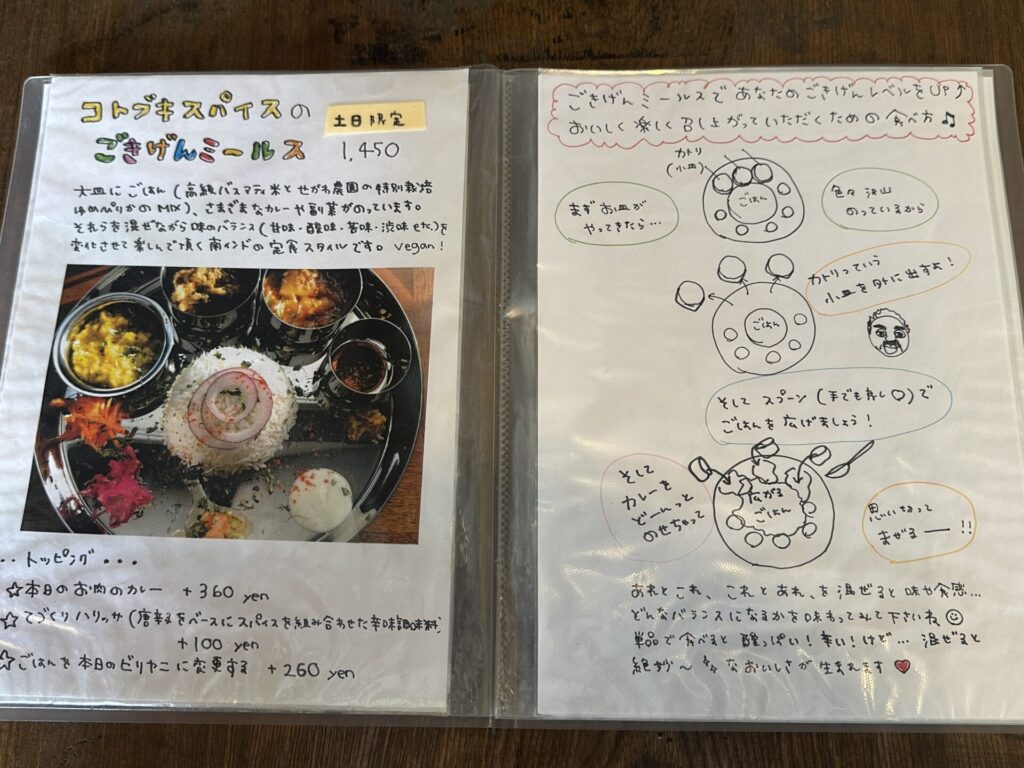 コトブキスパイスの
ごきげんミールス
土日限定
1,450
大皿に ごはん (高級バスマティ米と せがわ農園の特別栽培
ゆめぴりかの MIX)、さまざまなカレーや副菜がのっています。
それらを混ぜながら味のバランス(甘味・酸味・苦味・渋味 etc.)を
変化させて楽しんで頂く南インドの定食スタイルです。 vegan!
・・トッピング・・・
☆本日のお肉のカレー +360 yen
☆てづくりハリッサ (唐辛子をベースにスパイスを組み合わせた辛味調味料)
+100 yen
☆ごはんを本日のビリヤニに変更する +260 yen
ごきげんミールスであなたのごきげんレベルをUP↑
おいしく楽しく召し上がっていただくための食べ方♫
カトリ
(小皿)
ごはん
まずお皿が
やってきたら…
色々沢山
のっているから
カトリっていう
小皿を外に出すよ!
ごはん
そして スプーン (手でも良し♡)で
ごはんを広げましょう!
そして
カレーを
どーんっと
のせちゃって
広がる
ごはん
思いきって
まぜるー!!
あれとこれ、これとあれ、を混ぜると味や食感…
どんなバランスになるかを味わってみて下さいね☺
単品で食べると酸っぱい!辛い!けど… 混ぜると
絶妙〜なおいしさが生まれます♥